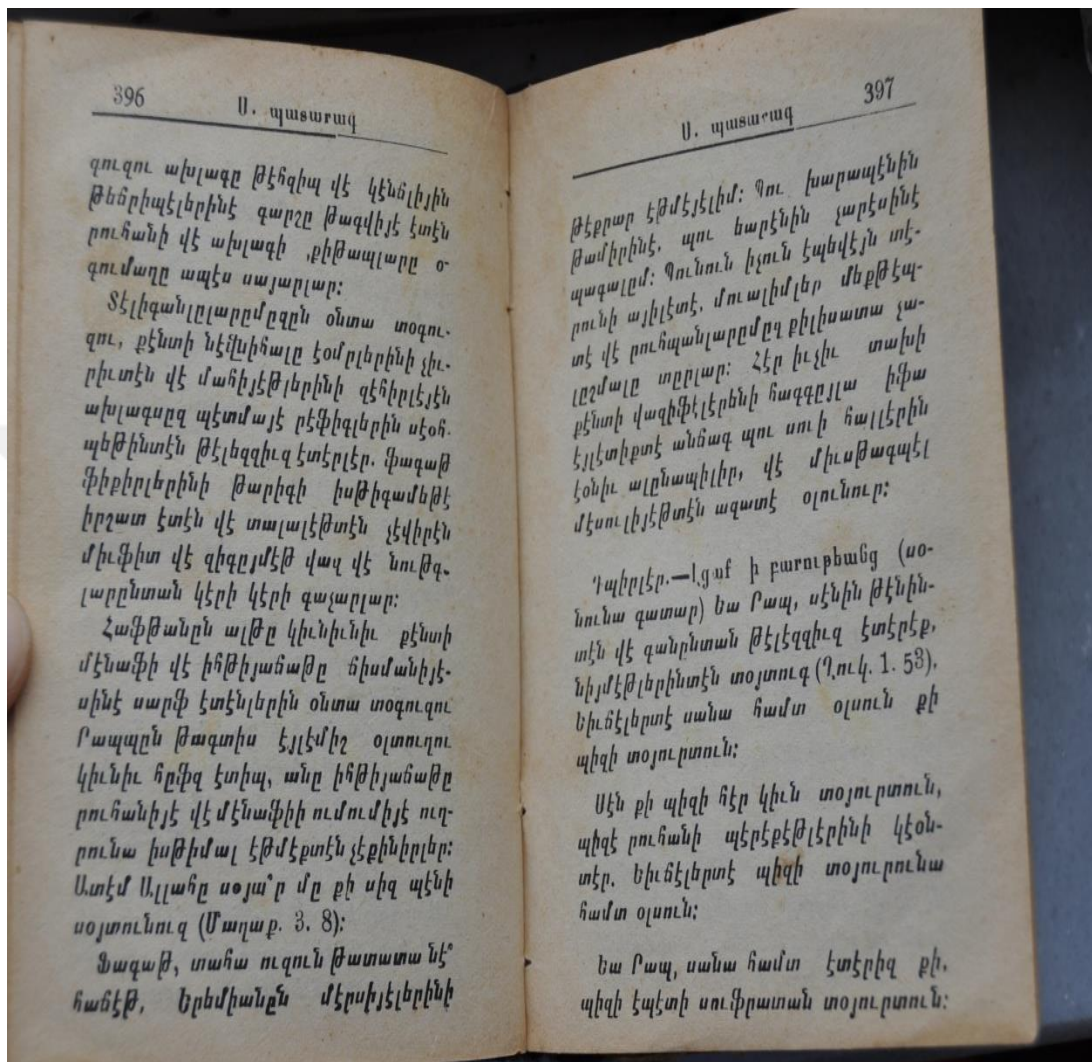 396
Ս. պատարագ
զուզու ախլագը թէհզիպ վէ կէնճլիյին
թեճրիպէլերինէ գարշը թագվիյէ էտէն
րուհանի վէ ախլագի ,քիթապլարը օ-
գումաղը ապէս սայարլար։
Տէլիգանլըլարըմըզըն օնտա տօգու-
զու, քէնտի նէֆսիհալը էօմրլերինի չիւ-
րիւտէն վէ մահիյէթլերինի զէհիրլէյէն
ախլագսըզ պէտմայէ րէֆիգլերին սէօհ-
պեթինտէն թէլեզզիւզ էտէրլէր. ֆագաթ
ֆիքիրլերինի թարիգի իսթիգամեթէ
իրշատ էտէն վէ տալալէթտէն չէվիրէն
միւֆիտ վէ գիգըյմէթ վազ վէ նութգ-
լարընտան կէրի կէրի գաչարլար։
Հաֆթանըն ալթը կիւնիւնիւ քէնտի
մէնաֆի վէ իհթիյաճաթը ճիսմանիյէ-
սինէ սարֆ էտէնլերին օնտա տօգուզու
Րապպըն թագտիս էյլէմիշ օլտուղու
կիւնիւ հըֆզ էտիպ, անը իհթիյաճաթը
րուհանիյէ վէ մէնաֆիի ումումիյէ ուղ-
րունա իսթիմալ էթմէքտէն չէքինիրլեր։
Ատէմ Ալլահը սօյա՞ր մը քի սիզ պէնի
սօյտունուզ (Մաղաք. 3. 8)։
Ֆագաթ, տահա ուզուն թատատա նէ՞
հաճէթ, Երեմիանըն մէրսիյէլերինի
397
Ս. պատարագ
թէքրար էթմէյէլիմ։ Պու խարապէնին
թամիրինէ, պու եարէնին չարէսինէ
պագալըմ։ Պունուն իչուն էպեվէյն տէ-
րունի այիլէտէ, մուալիմլեր մեքթէպ-
տէ վէ րուհպանլարըմըզ քիլիսատա չա-
լըշմալը տըրլար։ Հէր իւչիւ տախի
քէնտի վազիֆէլէրենի հագգըյլա իֆա
էյլէտիքտէ անճագ պու սուի հալլէրին
էօնիւ ալընապիլիր, վէ միւսթագպէլ
մէսուլիյէթտէն ազատէ օլունուր։
Դպիրլէր.—Լցաք ի բարութեանց (սօ-
նունա գատար) Եա Րապ, սէնին թէնին-
տէն վէ գանընտան թէլէզզիւզ էտէրէք,
նիյմէթլերինտէն տօյտուգ (Ղուկ. 1. 53).
Եիւճէլերտէ սանա համտ օլսուն քի
պիզի տօյուրտուն։
Սէն քի պիզի հէր կիւն տօյուրտուն,
պիզէ րուհանի պէրէքէթլէրինի կէօն-
տէր. Եիւճէլերտէ պիզի տօյուրունա
համտ օլսուն։
Եա Րապ, սանա համտ էտէրիզ քի,
պիզի էպէտի սուֆրատան տօյուրտուն։